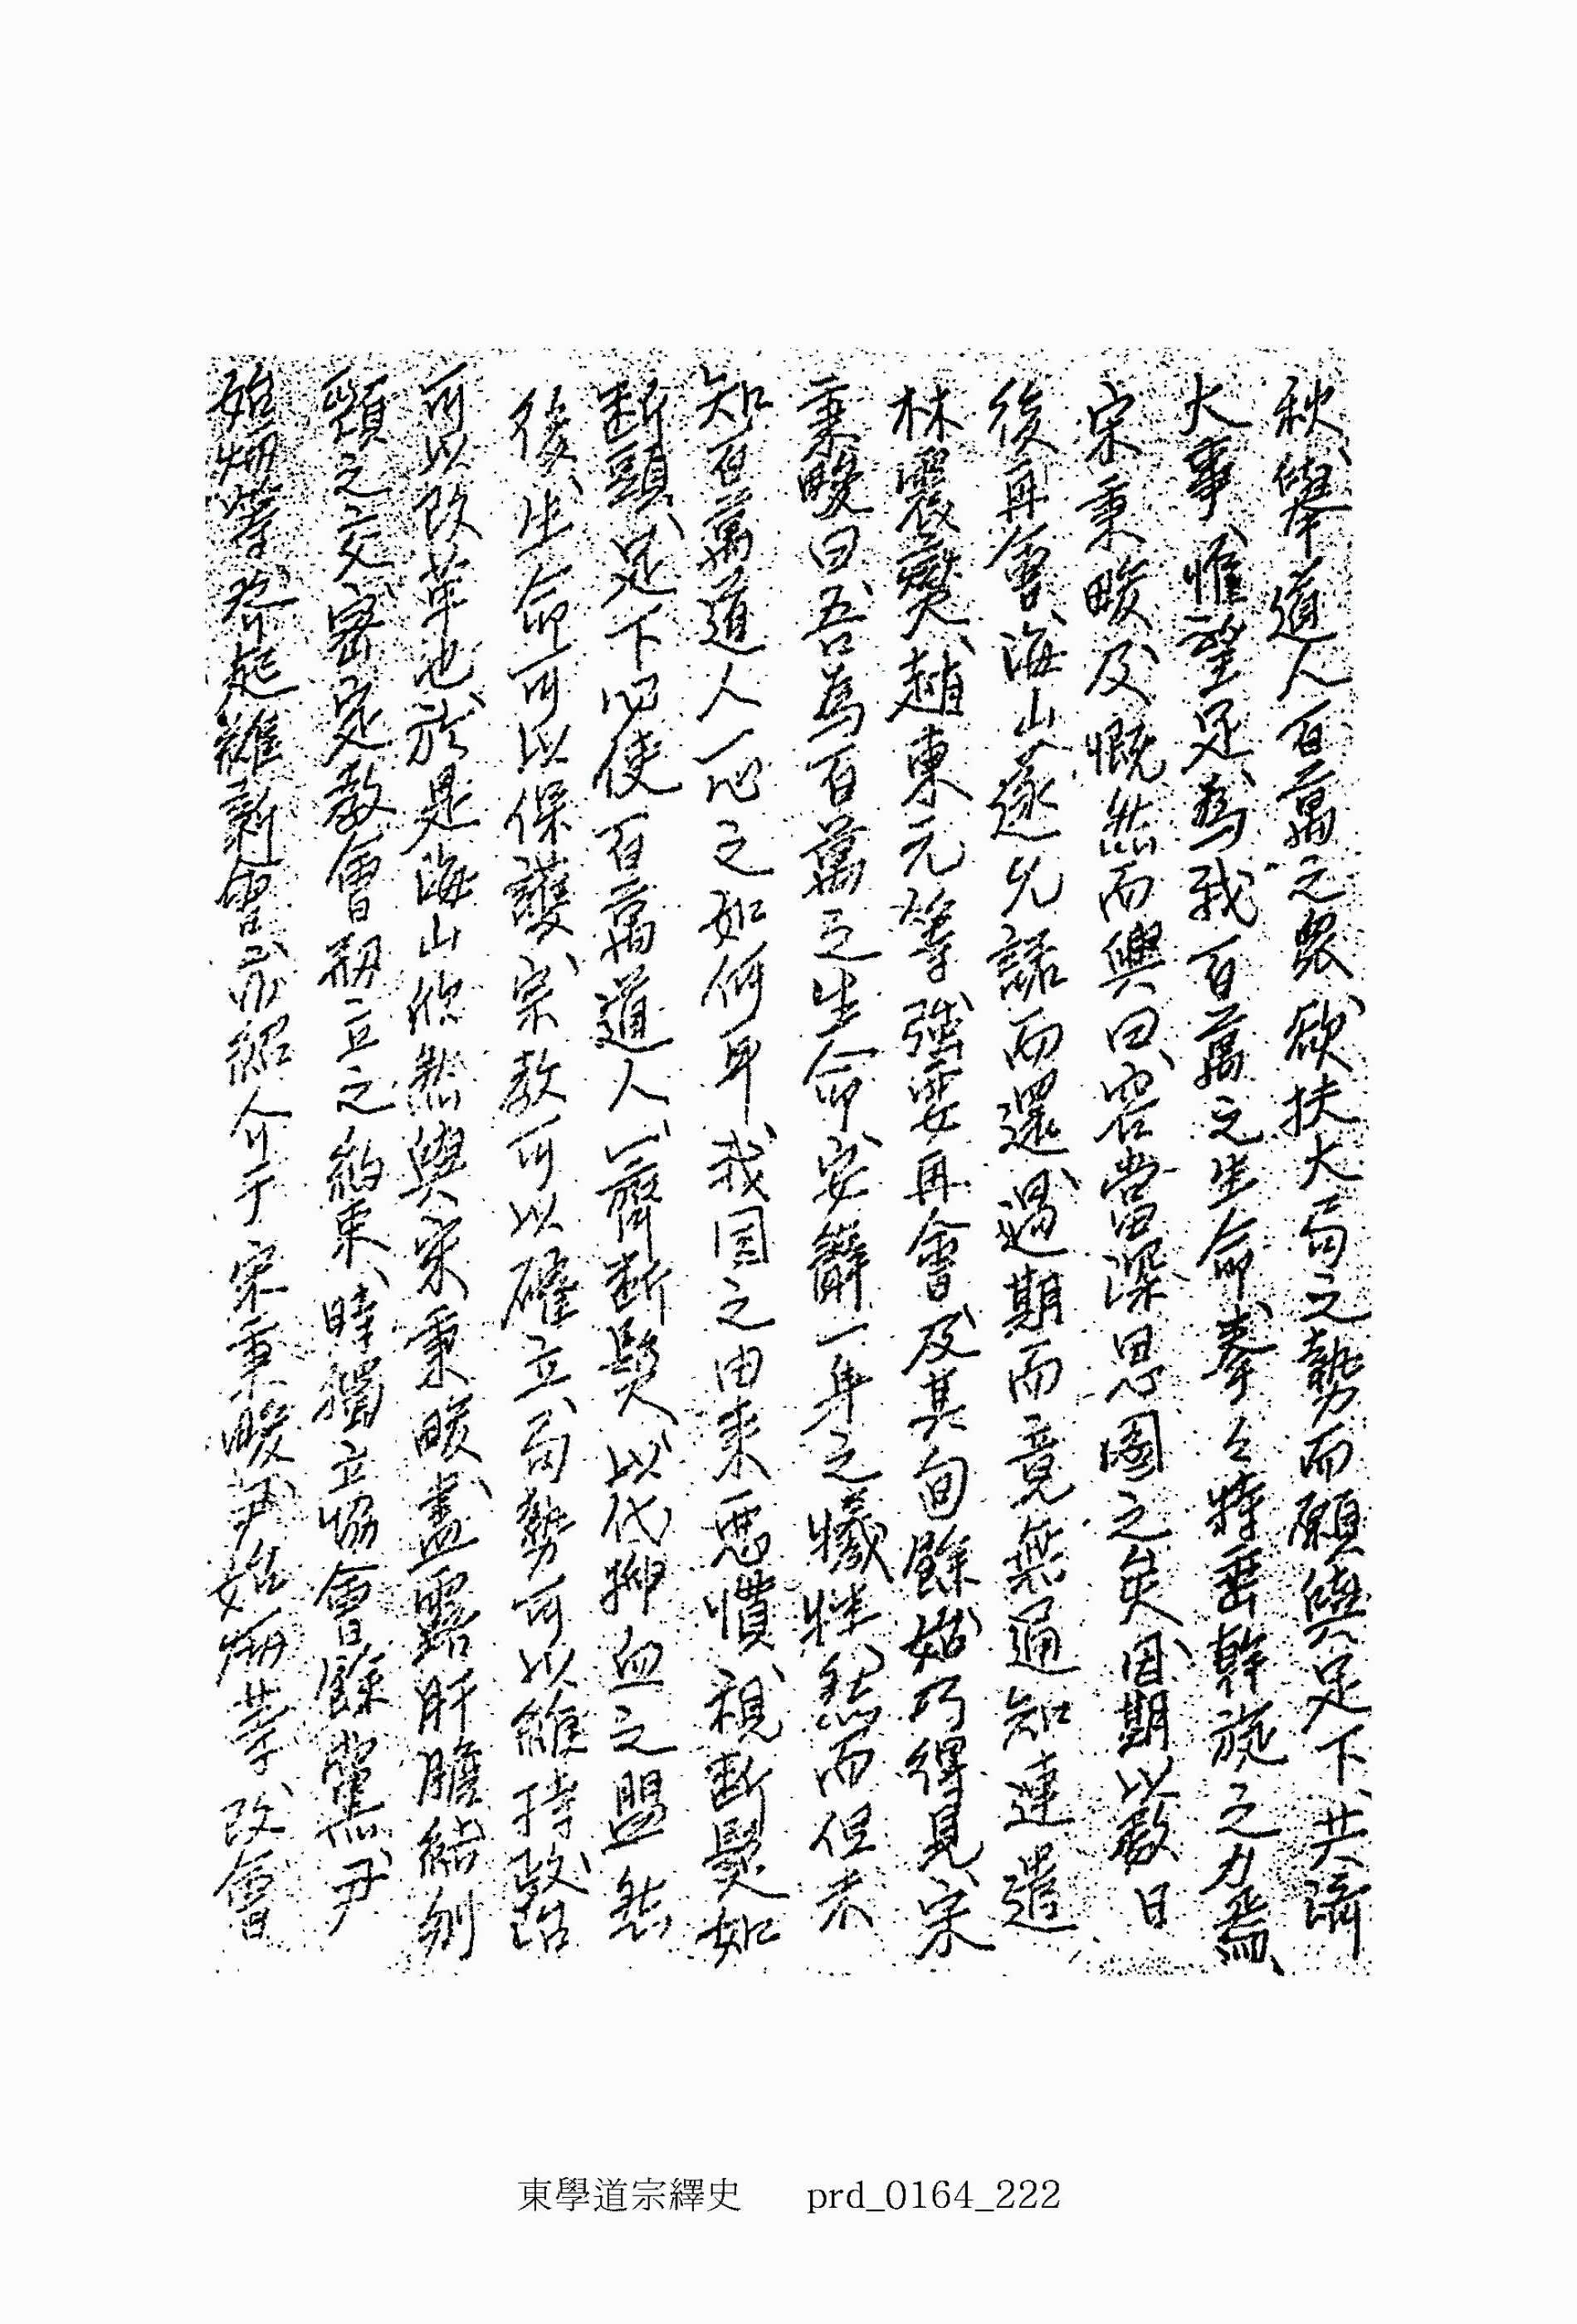 秋、擧道人百萬之衆、欲扶大局之勢而願與足下、共濟
大事、惟望足下爲我百萬之生命、拳々特垂斡旋之力焉、
宋秉畯及慨然而興曰、容當深思圖之矣、因期以數日
後再會、海山遂允諾而還、過期而竟無通知、連遣
林震燮、趙東元等、强要再會、及其旬餘、始乃得見、宋
秉畯曰、吾爲百萬之生命、安辭一身之犧牲、然而但未
知百萬道人一心之如何耳、我国之由来惡慣、視断髮如
断頭、足下以使百萬道人、一齊断髮、以代歃血之盟、然
後、生命可以保護、宗教可以確立、局勢可以維持、政治
可以改革也、於是海山欣然與宋秉畯、盡露肝膽、結刎
頸之交、密定教會刱立之約束、時獨立協會餘黨、尹
始炳等、发起維新會、亦紹介于宋秉畯、尹始炳等、改會
東學道宗繹史 prd_0164_222